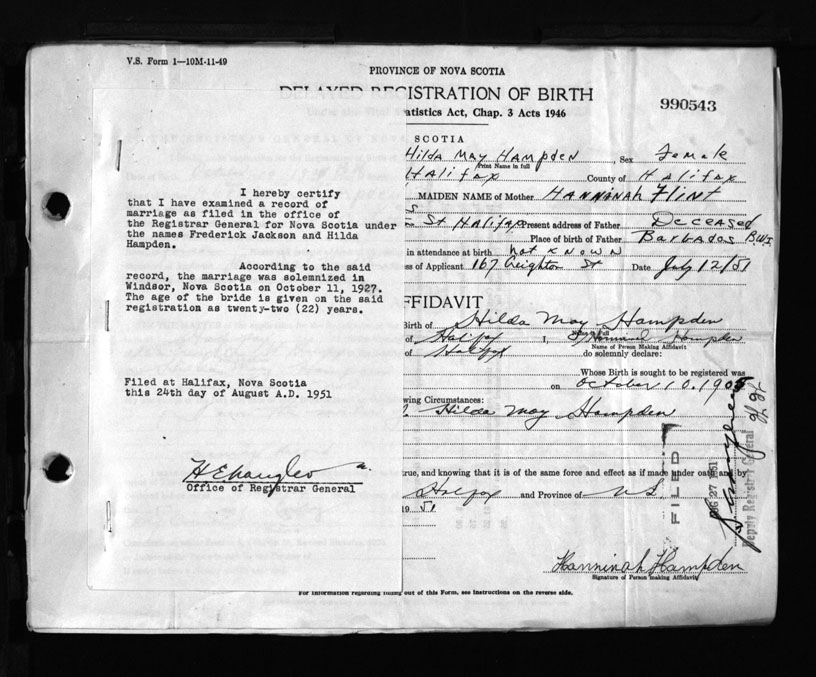 V.S. Form 1—10M-11-49
PROVINCE OF NOVA SCOTIA
DELAYED REGISTRATION OF BIRTH
990543
atistics Act, Chap. 3 Acts 1946
SCOTIA
Hilda May Hampden Sex Female
Print Name in full
Halifax County of Halifax
MAIDEN NAME of Mother Hanninah Flint
St Halifax Present address of Father Deceased
Place of birth of Father Barbados B.W.I
in attendance at birth not known
ss of Applicant 167 Creighton St Date July 12/51
I hereby certify
that I have examined a record of
marriage as filed in the office of
the Registrar General for Nova Scotia under
the names Frederick Jackson and Hilda
Hampden.
According to the said
record, the marriage was solemnized in
Windsor, Nova Scotia on October 11, 1927.
The age of the bride is given on the said
registration as twenty-two (22) years.
Filed at Halifax, Nova Scotia
this 24th day of August A.D. 1951
Office of Registrar General
FFIDAVIT
Birth of Hilda May Hampden
of Halifax I, Hampden
Name of Person Making Affidavit
of Halifax do solemnly declare:
Whose Birth is sought to be registered was
on October 10. 1905
wing Circumstances:
Hilda May Hampden
true, and knowing that it is of the same force and effect as if made under oath and by
Halifax and Province of N S
19 51
FILED
AUG 27 1951
Deputy Registrar General
Hanninah Hampden
Signature of Person making Affidavit
For information regarding filling out of this Form, see instructions on the reverse side.